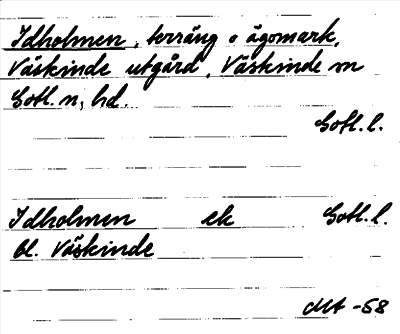 Idholmen, terräng o ägomark,
Väskinde utgård, Väskinde sn
Gotl. n, hd.
Gotl. l.
Idholmen ek Gotl. l.
bl. Väskinde
MA -58